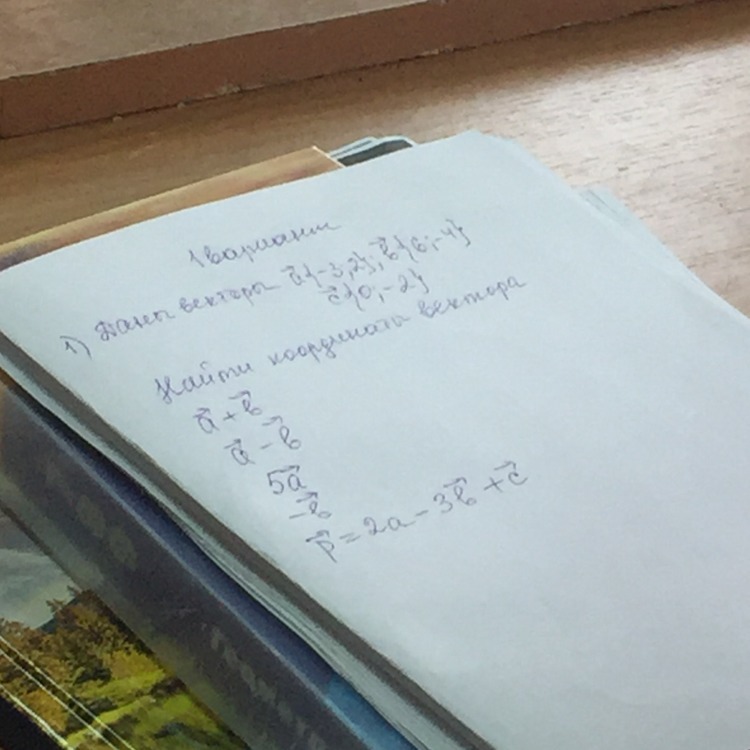 1 вариант
1) Даны векторы a⃗{-3;2}; b⃗{6;-4}
c⃗{0;-2}
Найти координаты вектора
a⃗ + b⃗
a⃗ - b⃗
5a⃗
-b⃗
p⃗ = 2a - 3b⃗ + c⃗